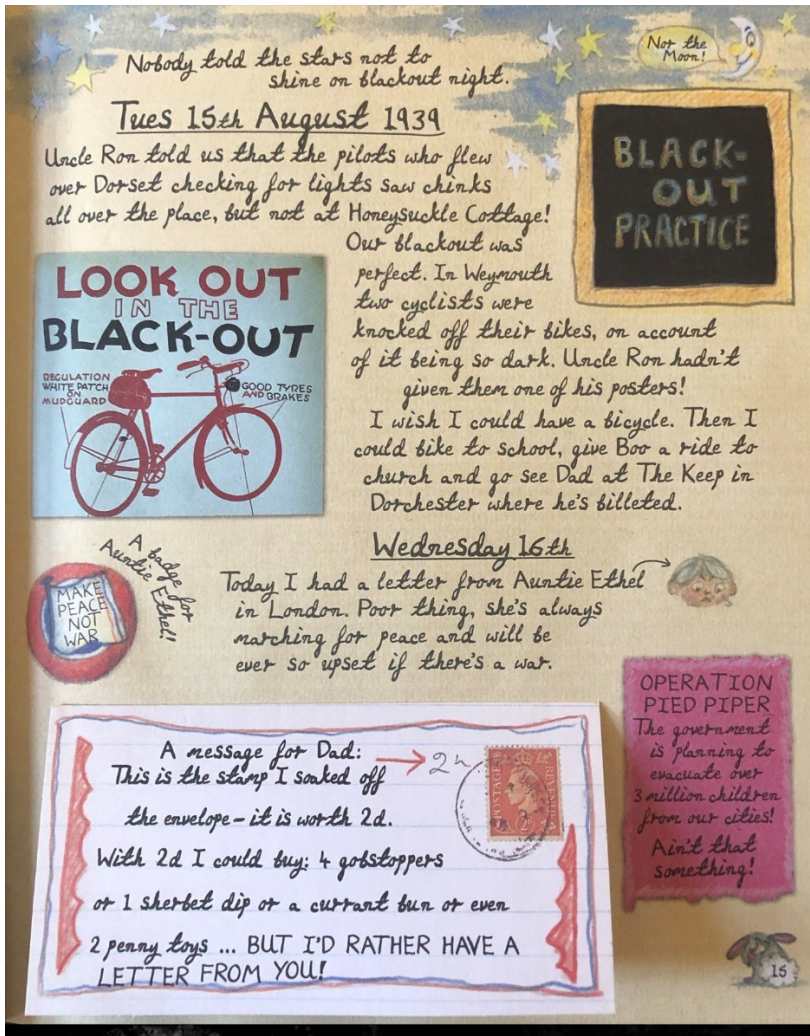 Nobody told the stars not to
shine on blackout night.
Not the
Moon!
Tues 15th August 1939
Uncle Ron told us that the pilots who flew
over Dorset checking for lights saw chinks
all over the place, but not at Honeysuckle Cottage!
Our blackout was
perfect. In Weymouth
two cyclists were
knocked off their bikes, on account
of it being so dark. Uncle Ron hadn't
given them one of his posters!
I wish I could have a bicycle. Then I
could bike to school, give Boo a ride to
church and go see Dad at The Keep in
Dorchester where he's billeted.
BLACK-
OUT
PRACTICE
LOOK OUT
IN THE
BLACK-OUT
REGULATION
WHITE PATCH
ON
MUDGUARD
GOOD TYRES
AND BRAKES
Wednesday 16th
Today I had a letter from Auntie Ethel
in London. Poor thing, she's always
marching for peace and will be
ever so upset if there's a war.
A badge for
Auntie Ethel!
MAKE
PEACE
NOT
WAR
OPERATION
PIED PIPER
The government
is planning to
evacuate over
3 million children
from our cities!
Ain't that
something!
A message for Dad:
This is the stamp I soaked off
the envelope – it is worth 2d.
With 2d I could buy: 4 gobstoppers
or 1 sherbet dip or a currant bun or even
2 penny toys ... BUT I'D RATHER HAVE A
LETTER FROM YOU!
POSTAGE
REVENUE
15